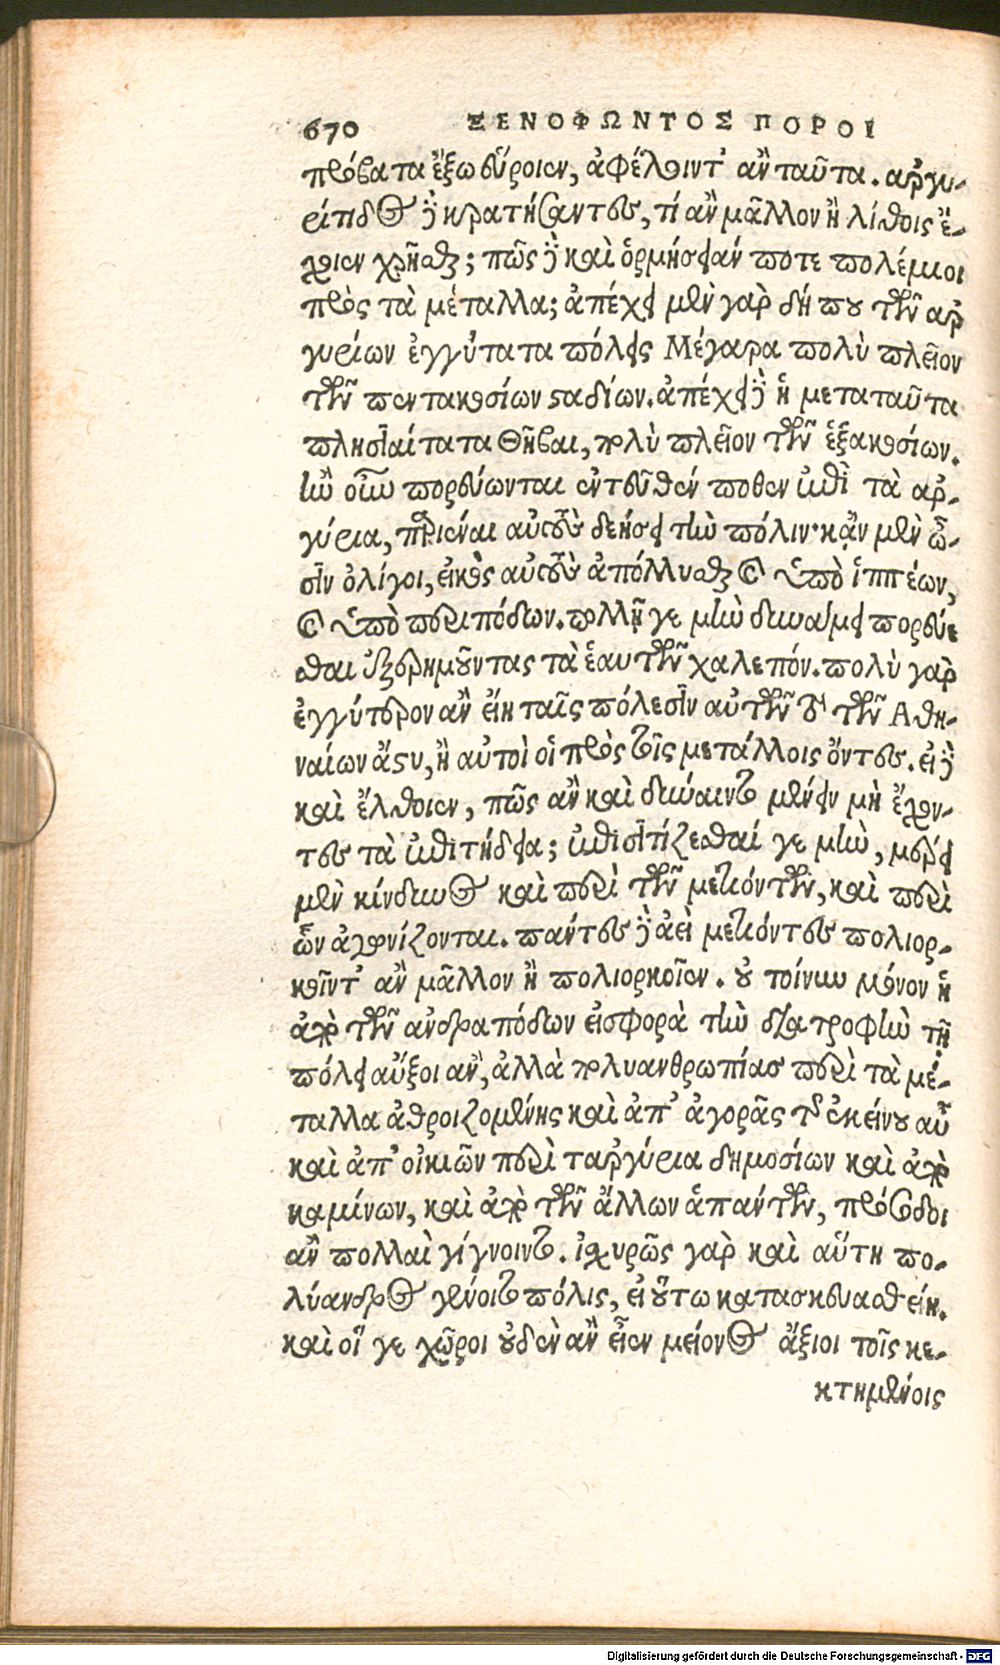 670 ΞΕΝΟΦΩΝΤΟΣ ΠΟΡΟΙ
πρόβατα ἔξω εὕροιεν, ἀφέλοιντ' ἂν ταῦτα. ἀργυ-
ρίτιδος δὲ κρατήσαντες, τί ἂν μᾶλλον ἢ λίθοις ἔ-
χοιεν χρῆσθαι; πῶς δὲ καὶ ὁρμήσειάν ποτε πολέμιοι
πρὸς τὰ μέταλλα; ἀπέχει μὲν γὰρ δή που τῶν ἀρ
γυρίων ἐγγύτατα πόλεις Μέγαρα πολὺ πλεῖον
τῶν πεντακοσίων σταδίων. ἀπέχει δὲ ἡ μεταταῦτα
πλησιαίτατα Θῆβαι, πολὺ πλεῖον τῶν ἑξακοσίων.
ἢν οὖν πορεύωνται ἐντεῦθέν ποθεν ἐπὶ τὰ ἀρ-
γύρια, παριέναι αὐτοὺς δεήσει τὴν πόλιν· κἂν μὲν ὦ-
σιν ὀλίγοι, εἰκὸς αὐτοὺς ἀπόλλυσθαι καὶ ὑπὸ ἱππέων,
καὶ ὑπὸ περιπόδων. πολλῇ γε μὴν δυνάμει πορεύε
σθαι ἐξερημοῦντας τὰ ἑαυτῶν χαλεπόν. πολὺ γὰρ
ἐγγύτερον ἂν εἴη ταῖς πόλεσιν αὐτῶν τὸ τῶν Ἀθη-
ναίων ἄστυ, ἢ αὐτοὶ οἱ πρὸς τοῖς μετάλλοις ὄντες. εἰ δὲ
καὶ ἔλθοιεν, πῶς ἂν καὶ δύναιντο μένειν μὴ ἔχον-
τες τὰ ἐπιτήδεια; ἐπισιτίζεσθαί γε μὴν, μέρει
μὲν κίνδυνος καὶ περὶ τῶν μετιόντων, καὶ περὶ
ὧν ἀγωνίζονται. πάντες δὲ ἀεὶ μετιόντες πολιορ-
κοῖντ' ἂν μᾶλλον ἢ πολιορκοῖεν. οὐ τοίνυν μόνον ἡ
ἀπὸ τῶν ἀνδραπόδων εἰσφορὰ τὴν διατροφὴν τῇ
πόλει αὔξοι ἂν, ἀλλὰ πολυανθρωπίας περὶ τὰ μέ-
ταλλα ἀθροιζομένης καὶ ἀπ' ἀγορᾶς τῆς ἐκείνου αὖ
καὶ ἀπ' οἰκιῶν περὶ ταργύρια δημοσίων καὶ ἀπὸ
καμίνων, καὶ ἀπὸ τῶν ἄλλων ἁπάντων, πρόσοδοι
ἂν πολλαὶ γίγνοιντο. ἰσχυρῶς γὰρ καὶ αὕτη πο-
λύανδρος γένοιτο πόλις, εἰ οὕτω κατασκευασθείη.
καὶ οἵ γε χῶροι οὐδὲν ἂν εἶεν μείονος ἄξιοι τοῖς κε-
κτημένοις
Digitalisierung gefördert durch die Deutsche Forschungsgemeinschaft - DFG